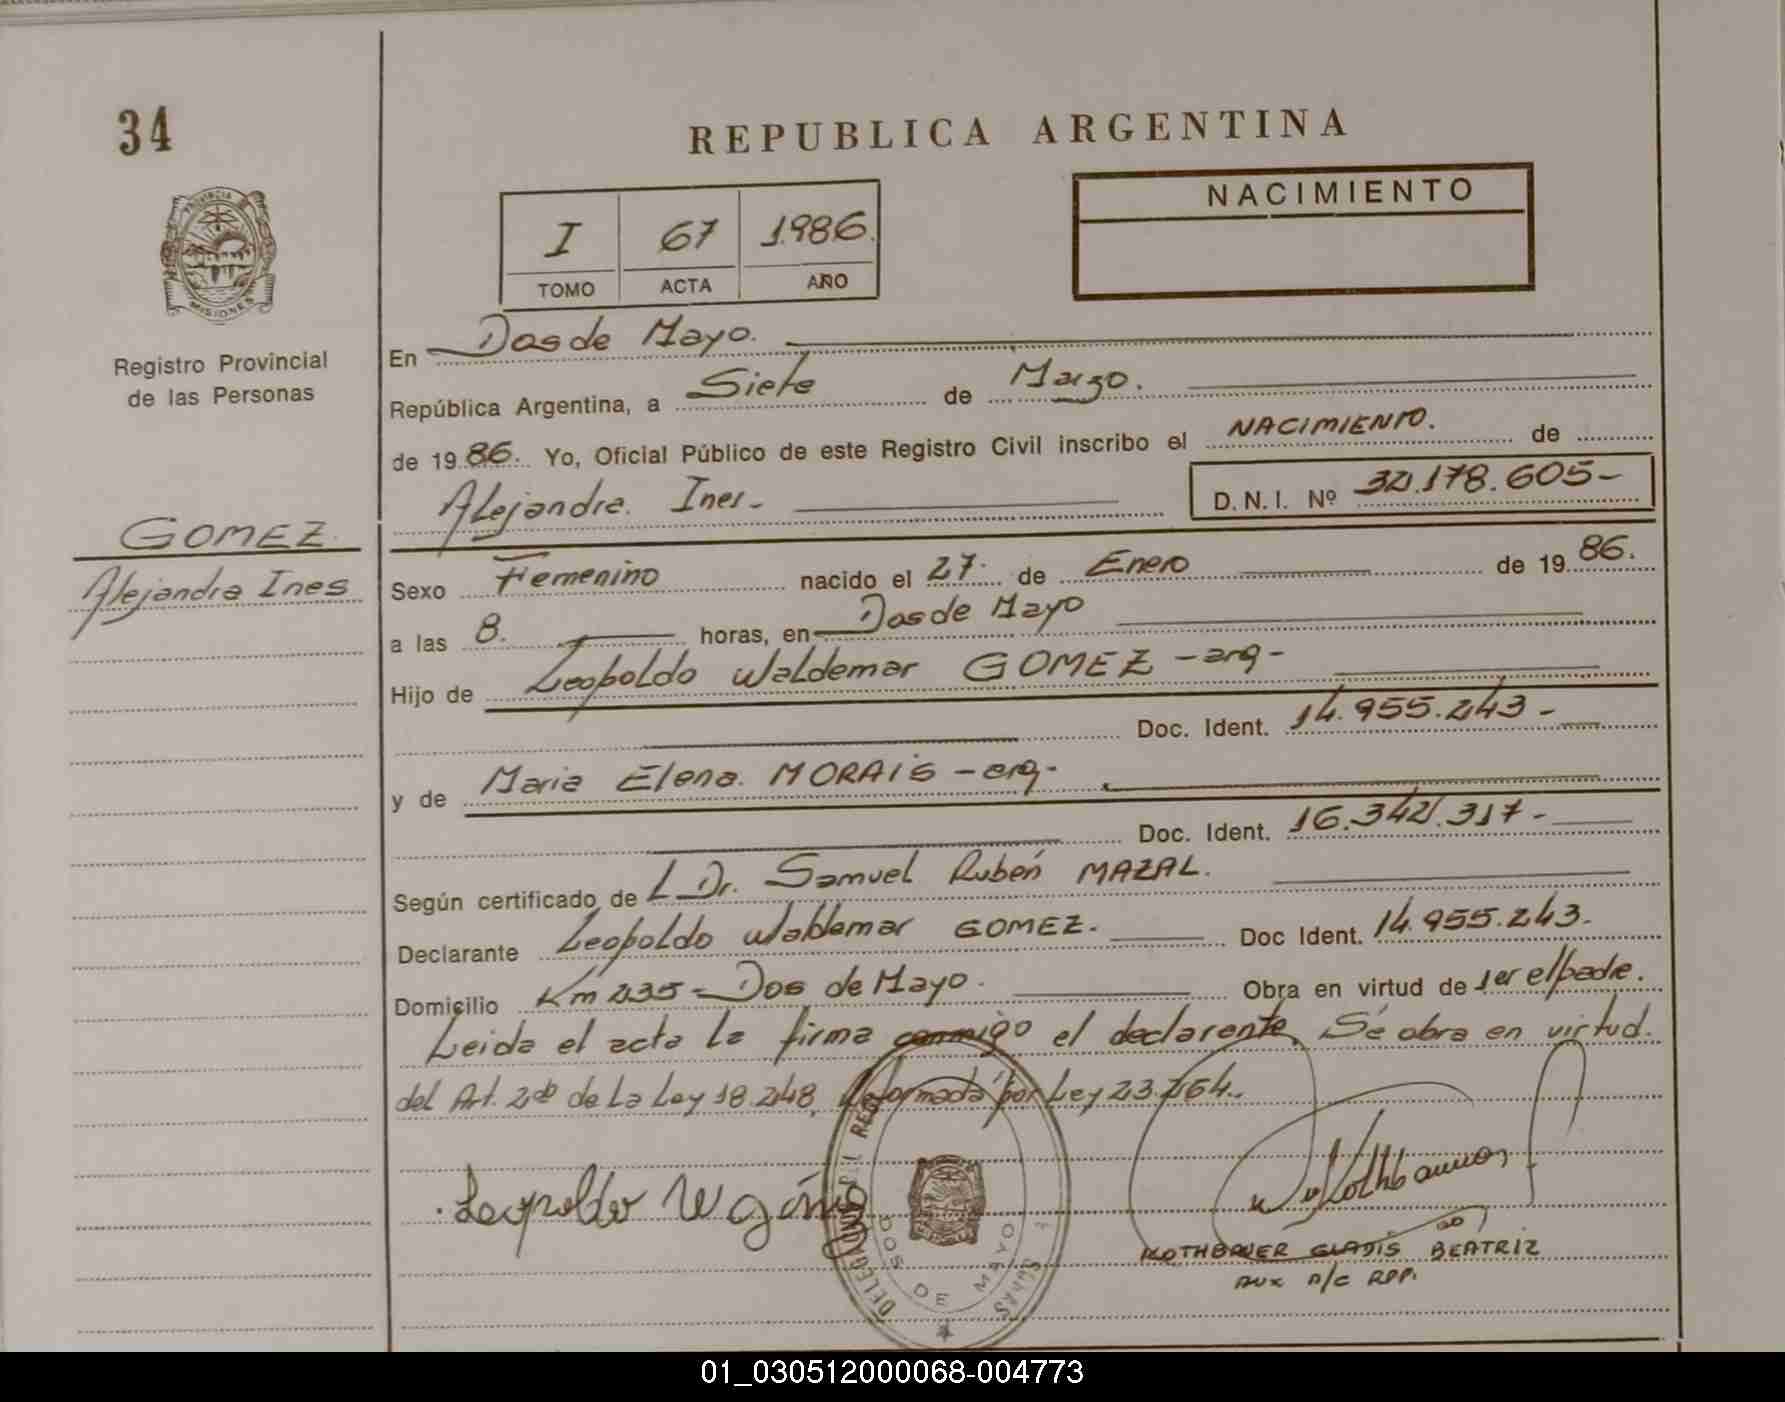 34
REPUBLICA ARGENTINA
NACIMIENTO
I 67 1.986.
TOMO ACTA AÑO
PROVINCIA DE
MISIONES
Registro Provincial
de las Personas
GOMEZ.
Alejandra Ines
En Dos de Mayo.
República Argentina, a Siete de Marzo.
de 1986. Yo, Oficial Público de este Registro Civil inscribo el NACIMIENTO. de
Alejandra. Ines- D.N.I. Nº 32.178.605-
Sexo Femenino nacido el 27. de Enero de 1986.
a las 8. horas, en Dos de Mayo
Hijo de Leopoldo Waldemar GOMEZ -arg-
Doc. Ident. 14.955.243-
y de Maria Elena. MORAIS -arg-
Doc. Ident. 16.342.317-
Según certificado de L Dr. Samuel Rubén MAZAL.
Declarante Leopoldo Waldemar GOMEZ. Doc Ident. 14.955.243.
Domicilio Km 235 - Dos de Mayo. Obra en virtud de ser el padre.
Leida el acta la firma conmigo el declarante. Sé obra en virtud.
del Art. 2do de La Ley 18.248, Reformada por Ley 23.264.
Leopoldo W Gómez
DOS DE MAYO
ROTHBAUER GLADIS BEATRIZ
AUX A/C RPP.
01_030512000068-004773